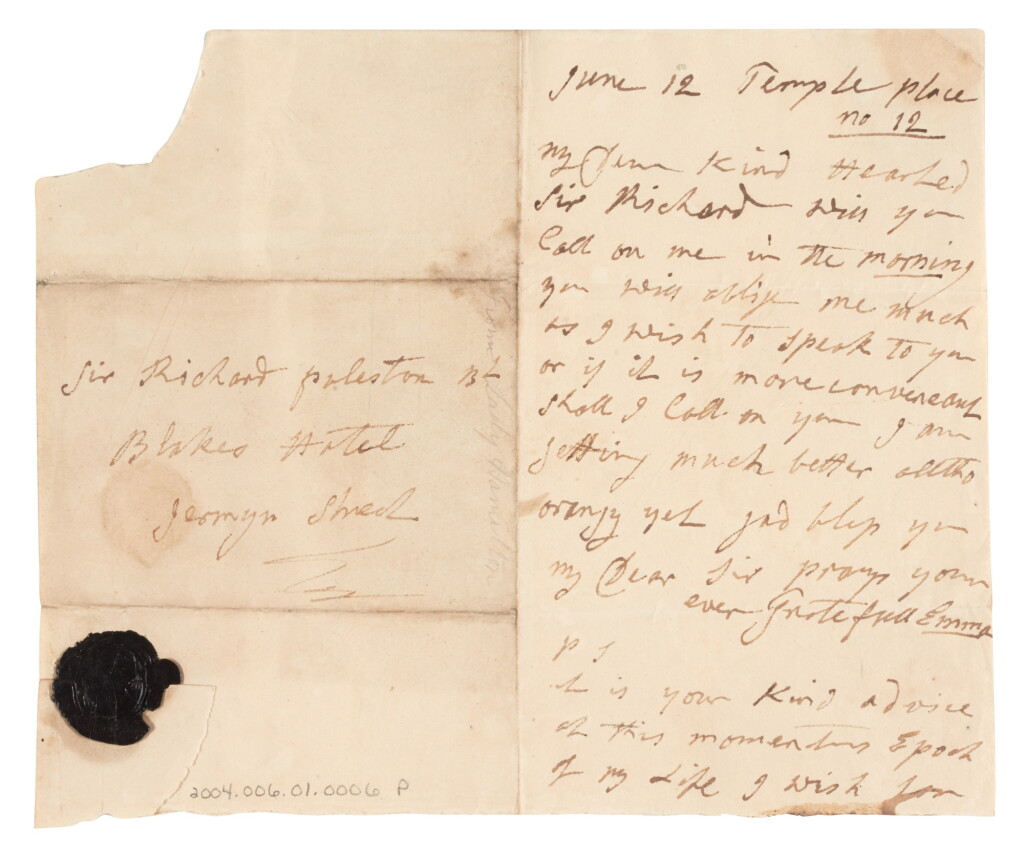 June 12 Temple place
no 12
My Dear Kind Hearted
Sir Richard will you
Call on me in the morning
you will oblige me much
as I wish to speak to you
or if it is more conveneant
shall I Call on you I am
getting much better alltho
orangy yet gad bless you
my Dear Sir prays your
ever Gratefull Emma
P S
it is your Kind advice
at this momentus Epoch
of my Life I wish for
Sir Richard puleston Bt
Blakes Hotel
Jermyn Street
From Lady Hamilton
2004.006.01.0006 P